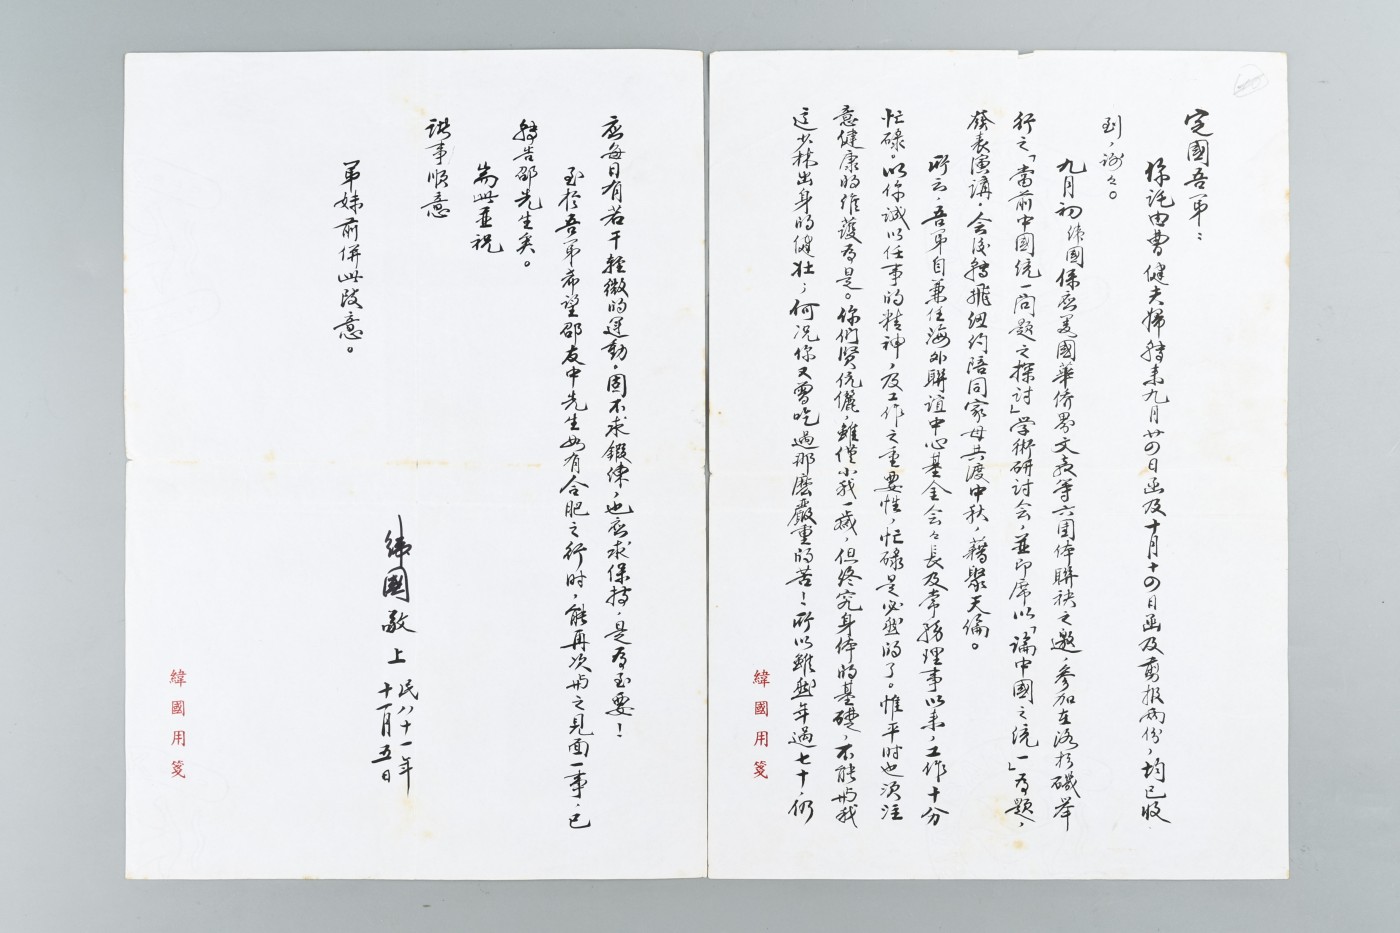 定國吾弟：
你託由曹健夫婦轉來九月廿四日函及十月十四日函及剪報兩份，均已收
到，謝々。
九月初緯國係應美國華僑界文教等六团体聯袂之邀，參加在洛杉磯举
行之「當前中國統一問題之探討」学術研討会，並即席以「論中國之統一」為題，
發表演講，会後轉飛纽约陪同家母共渡中秋，藉聚天倫。
所云，吾弟自兼任海外聯誼中心基金会々長及常務理事以来，工作十分
忙碌。以你诚以任事的精神，及工作之重要性，忙碌是必然的了。惟平时也須注
意健康的维護為是。你們賢伉儷，雖僅小我一歲，但终究身体的基礎，不能与我
這少林出身的健壯；何况你又曾吃過那麼嚴重的苦！所以雖然年過七十，仍
應每日有若干輕微的運動，固不求鍛鍊，也應求保持，是為至要！
至於吾弟希望邵友中先生如有合肥之行时，能再次与之見面一事，已
轉告邵先生矣。
耑此並祝
諸事順意
弟妹前併此致意。
緯國敬上 民八十一年
十一月五日
緯國用箋
緯國用箋